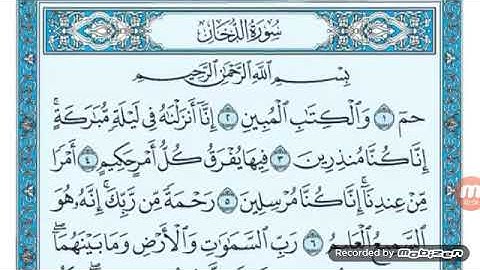 سُورَةُ الدُّخَانِ
بِسْمِ اللَّهِ الرَّحْمَٰنِ الرَّحِيمِ
حمٓ ١ وَالْكِتَابِ الْمُبِينِ ٢ إِنَّا أَنزَلْنَاهُ فِي لَيْلَةٍ مُّبَارَكَةٍ ۚ
إِنَّا كُنَّا مُنذِرِينَ ٣ فِيهَا يُفْرَقُ كُلُّ أَمْرٍ حَكِيمٍ ٤ أَمْرًا
مِّنْ عِندِنَا ۚ إِنَّا كُنَّا مُرْسِلِينَ ٥ رَحْمَةً مِّن رَّبِّكَ ۚ إِنَّهُ هُوَ
السَّمِيعُ الْعَلِيمُ ٦ رَبِّ السَّمَاوَاتِ وَالْأَرْضِ وَمَا بَيْنَهُمَا ۖ
Recorded by MOBIZEN